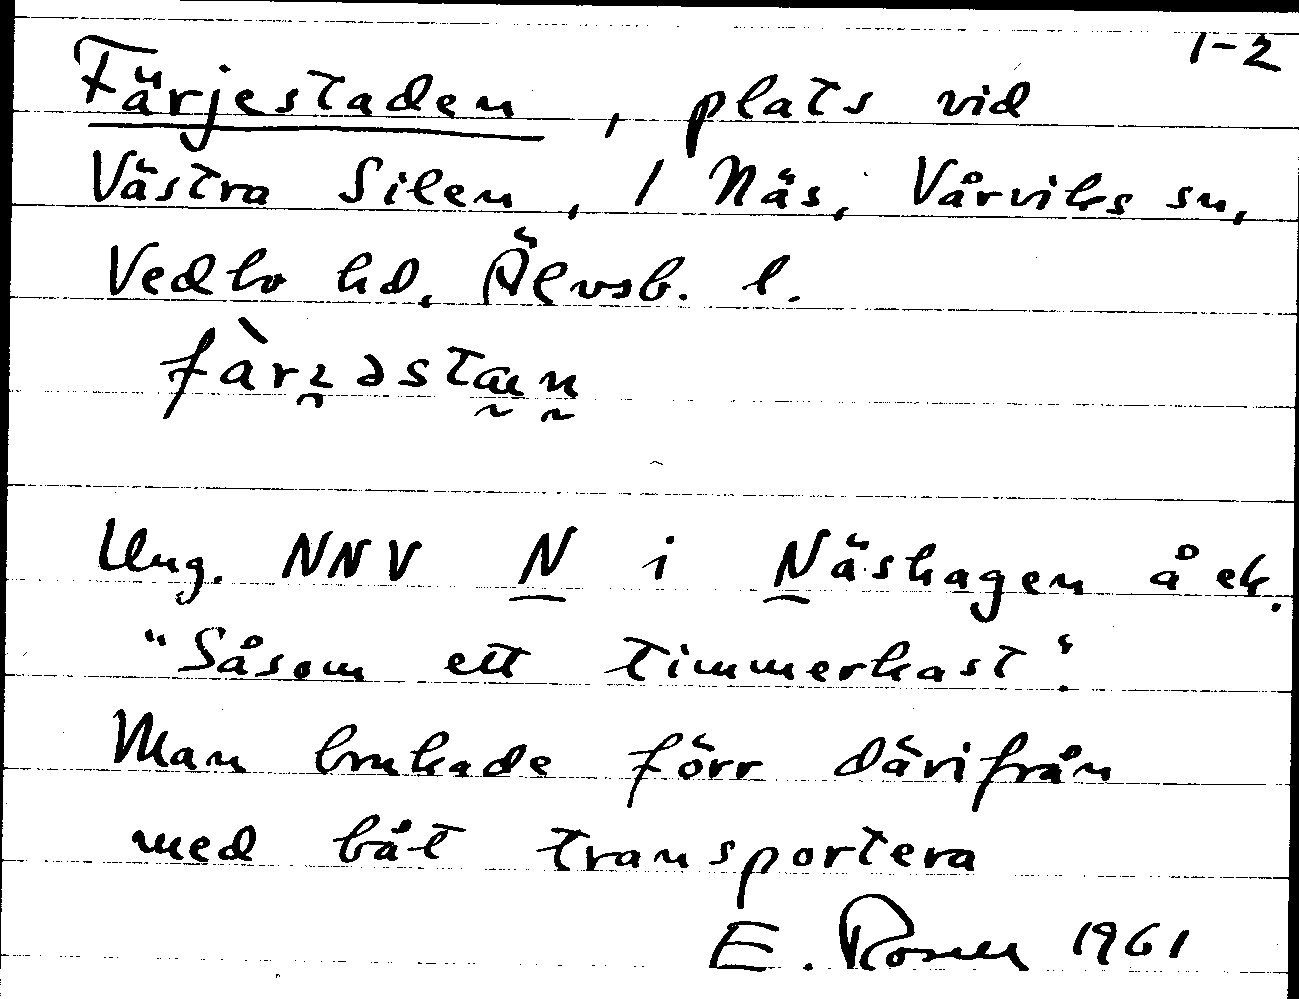 1-2
Färjestaden, plats vid
Västra Silen, / Näs, Vårviks sn,
Vedbo hd. Älvsb. l.
Ung. NNV N i Näshagen å ek.
"Såsom ett timmerkast".
Man brukade förr därifrån
med båt transportera
E. 1961